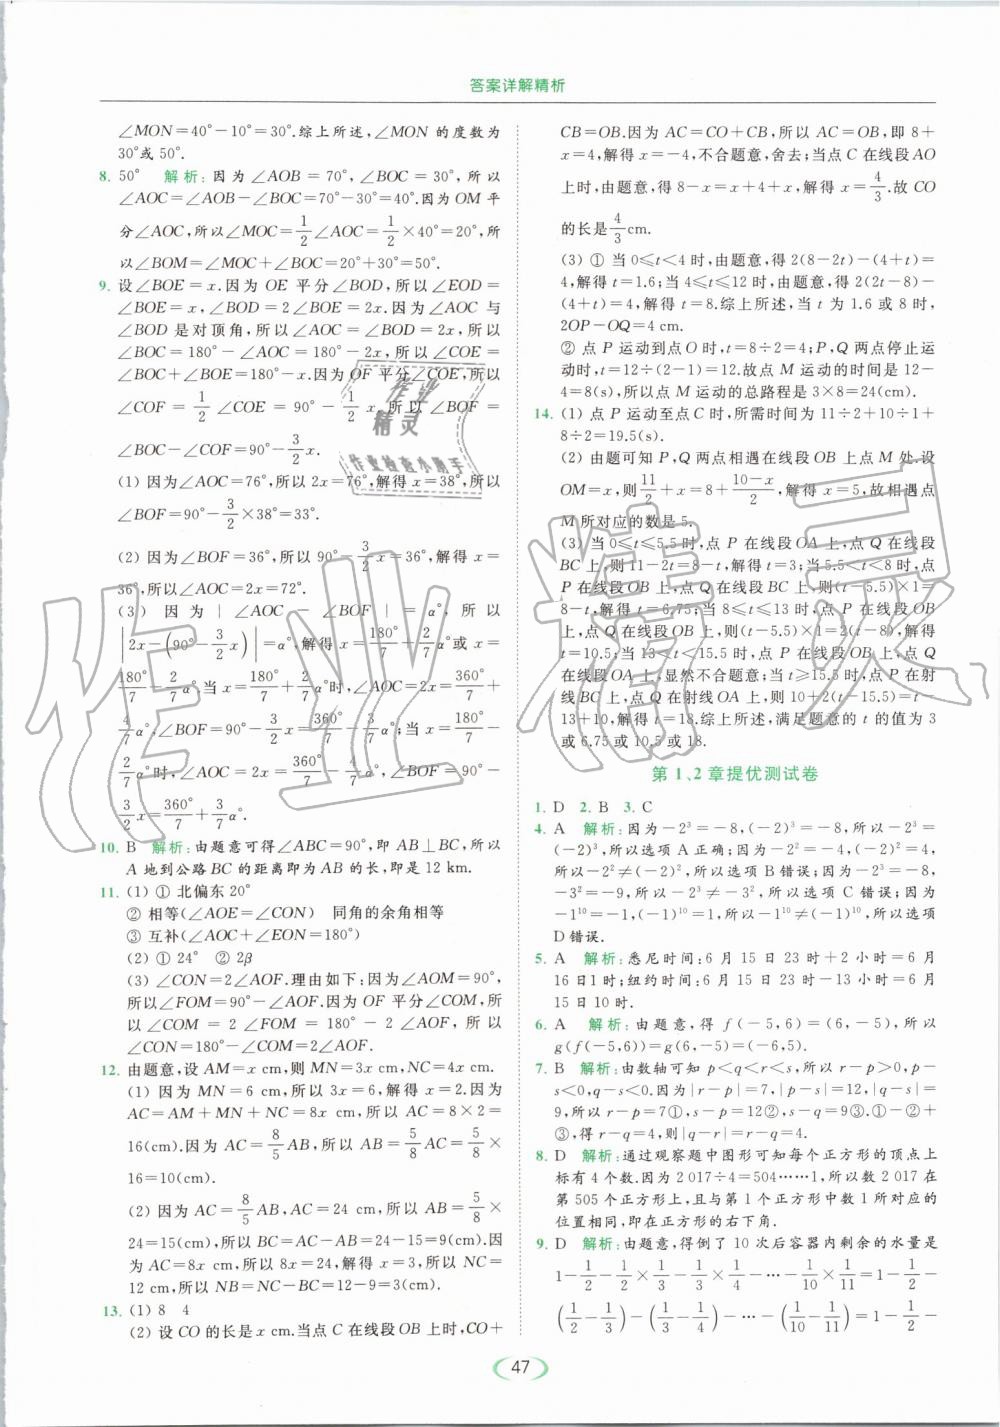 答案详解精析
∠MON=40°-10°=30°.综上所述,∠MON 的度数为
30°或 50°.
8. 50° 解析:因为∠AOB=70°,∠BOC=30°,所以
∠AOC=∠AOB-∠BOC=70°-30°=40°.因为 OM 平
分∠AOC,所以∠MOC=1/2∠AOC=1/2×40°=20°,所
以∠BOM=∠MOC+∠BOC=20°+30°=50°.
9. 设∠BOE=x.因为 OE 平分∠BOD,所以∠EOD=
∠BOE=x,∠BOD=2∠BOE=2x.因为∠AOC 与
∠BOD 是对顶角,所以∠AOC=∠BOD=2x,所以
∠BOC=180°-∠AOC=180°-2x,所以∠COE=
∠BOC+∠BOE=180°-x.因为OF 平分∠COE,所以
∠COF=1/2∠COE=90°-1/2x,所以∠BOF=
∠BOC-∠COF=90°-3/2x.
(1) 因为∠AOC=76°,所以2x=76°,解得x=38°,所以
∠BOF=90°-3/2×38°=33°.
(2) 因为∠BOF=36°,所以90°-3/2x=36°,解得 x=
36°,所以∠AOC=2x=72°.
(3) 因为|∠AOC-∠BOF|=α°,所以
|2x-(90°-3/2x)|=α°,解得 x=180°/7+2/7α°或 x=
180°/7-2/7α°.当 x=180°/7+2/7α°时,∠AOC=2x=360°/7+
4/7α°,∠BOF=90°-3/2x=360°/7-3/7α°;当 x=180°/7-
2/7α°时,∠AOC=2x=360°/7-4/7α°,∠BOF=90°-
3/2x=360°/7+3/7α°.
10. B 解析:由题意可得∠ABC=90°,即 AB⊥BC,所以
A 地到公路 BC 的距离即为 AB 的长,即是 12 km.
11. (1) ① 北偏东 20°
② 相等(∠AOE=∠CON) 同角的余角相等
③ 互补(∠AOC+∠EON=180°)
(2) ① 24° ② 2β
(3) ∠CON=2∠AOF.理由如下:因为∠AOM=90°,
所以∠FOM=90°-∠AOF.因为 OF 平分∠COM,所
以∠COM=2∠FOM=180°-2∠AOF,所以
∠CON=180°-∠COM=2∠AOF.
12. 由题意,设 AM=x cm,则 MN=3x cm,NC=4x cm.
(1) 因为 MN=6 cm,所以 3x=6,解得 x=2.因为
AC=AM+MN+NC=8x cm,所以 AC=8×2=
16(cm).因为 AC=8/5AB,所以 AB=5/8AC=5/8×
16=10(cm).
(2) 因为 AC=8/5AB,AC=24 cm,所以 AB=5/8×
24=15(cm),所以 BC=AC-AB=24-15=9(cm).因
为AC=8x cm,所以 8x=24,解得 x=3,所以 NC=
12 cm,所以 NB=NC-BC=12-9=3(cm).
13. (1) 8 4
(2) 设 CO 的长是 x cm.当点 C 在线段 OB 上时,CO+
CB=OB.因为 AC=CO+CB,所以 AC=OB,即 8+
x=4,解得 x=-4,不合题意,舍去;当点 C 在线段 AO
上时,由题意,得 8-x=x+4+x,解得 x=4/3.故 CO
的长是4/3cm.
(3) ① 当 0≤t<4 时,由题意,得 2(8-2t)-(4+t)=
4,解得 t=1.6;当 4≤t≤12 时,由题意,得 2(2t-8)-
(4+t)=4,解得 t=8.综上所述,当 t 为 1.6 或 8 时,
2OP-OQ=4 cm.
② 点 P 运动到点 O 时,t=8÷2=4;当 P,Q 两点停止运
动时,t=12÷(2-1)=12.故点 M 运动的时间是 12-
4=8(s),所以点 M 运动的总路程是 3×8=24(cm).
14. (1) 点 P 运动至点 C 时,所需时间为 11÷2+10÷1+
8÷2=19.5(s).
(2) 由题可知 P,Q 两点相遇在线段 OB 上点 M 处.设
OM=x,则11/2+x=8+(10-x)/2,解得 x=5,故相遇点
M 所对应的数是 5.
(3) 当 0≤t≤5.5 时,点 P 在线段 OA 上,点 Q 在线段
BC 上,则 11-2t=8-t,解得 t=3;当 5.5<t<8 时,点
P 在线段 OB 上,点 Q 在线段 BC 上,则(t-5.5)×1=
8-t,解得 t=6.75;当 8≤t≤13 时,点 P 在线段 OB
上,点 Q 在线段 OB 上,则(t-5.5)×1=2(t-8),解得
t=10.5;当 13<t<15.5 时,点 P 在线段 OB 上,点 Q 在
线段OA 上,显然不合题意;当 t≥15.5 时,点 P 在射
线 BC 上,点 Q 在射线 OA 上,则 10+2(t-15.5)=t-
13+10,解得 t=18.综上所述,满足题意的 t 的值为 3
或 6.75 或 10.5 或 18.
第 1、2 章提优测试卷
1. D 2. B 3. C
4. A 解析:因为-2³=-8,(-2)³=-8,所以-2³=
(-2)³,所以选项 A 正确;因为-2²=-4,(-2)²=4,
所以-2²≠(-2)²,所以选项 B 错误;因为-2³=-8,
-3²=-9,所以-2³≠-3²,所以选项 C 错误;因为
-1¹⁰=-1,(-1)¹⁰=1,所以-1¹⁰≠(-1)¹⁰,所以选项
D 错误.
5. A 解析:悉尼时间:6 月 15 日 23 时+2 小时=6 月
16日1时;纽约时间:6 月 15 日 23 时-13 小时=6 月
15 日 10 时.
6. A 解析:由题意,得 f(-5,6)=(6,-5),所以
g(f(-5,6))=g(6,-5)=(-6,5).
7. B 解析:由数轴可知 p<q<r<s,所以 r-p>0,p-
s<0,q-s<0.因为|r-p|=7,|p-s|=12,|q-s|=
9,所以 r-p=7①,s-p=12②,s-q=9③.①-②+
③,得 r-q=4,则|q-r|=r-q=4.
8. D 解析:通过观察题中图形可知每个正方形的顶点上
标有 4 个数.因为 2 017÷4=504……1,所以数 2 017 在
第 505 个正方形上,且与第 1 个正方形中数 1 所对应的
位置相同,即在正方形的右下角.
9. D 解析:由题意,得倒了 10 次后容器内剩余的水量是
1-1/2-1/2×1/3-1/3×1/4-…-1/10×1/11=1-1/2-
(1/2-1/3)-(1/3-1/4)-…-(1/10-1/11)=1-1/2-
47
作业
精灵
作业检查小帮手
作业精灵